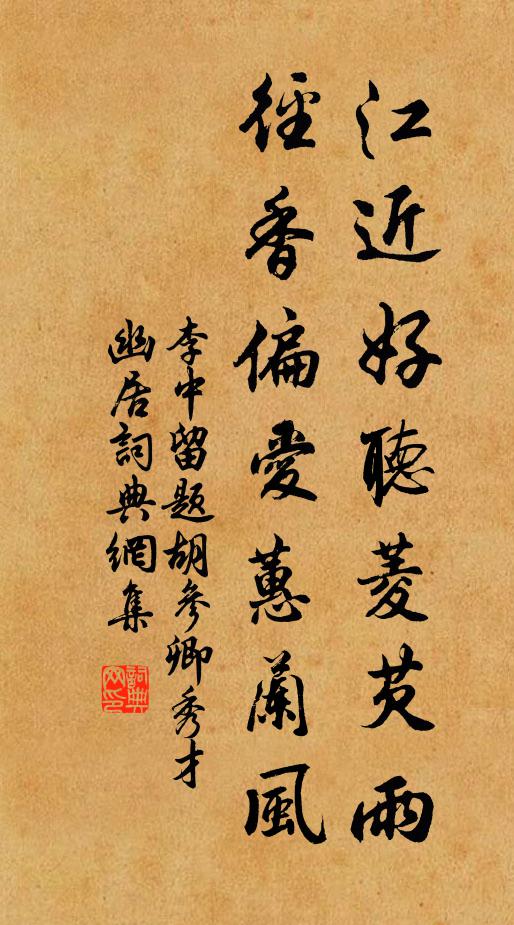 江近好聽菱芡雨
徑香偏愛蕙蘭風
李中留題胡參卿秀才
幽居詞典網集
詞典
网印